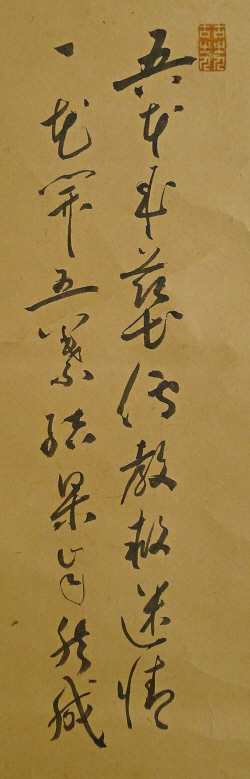 吾本来茲土傳教救迷情
一花開五葉結果自然成